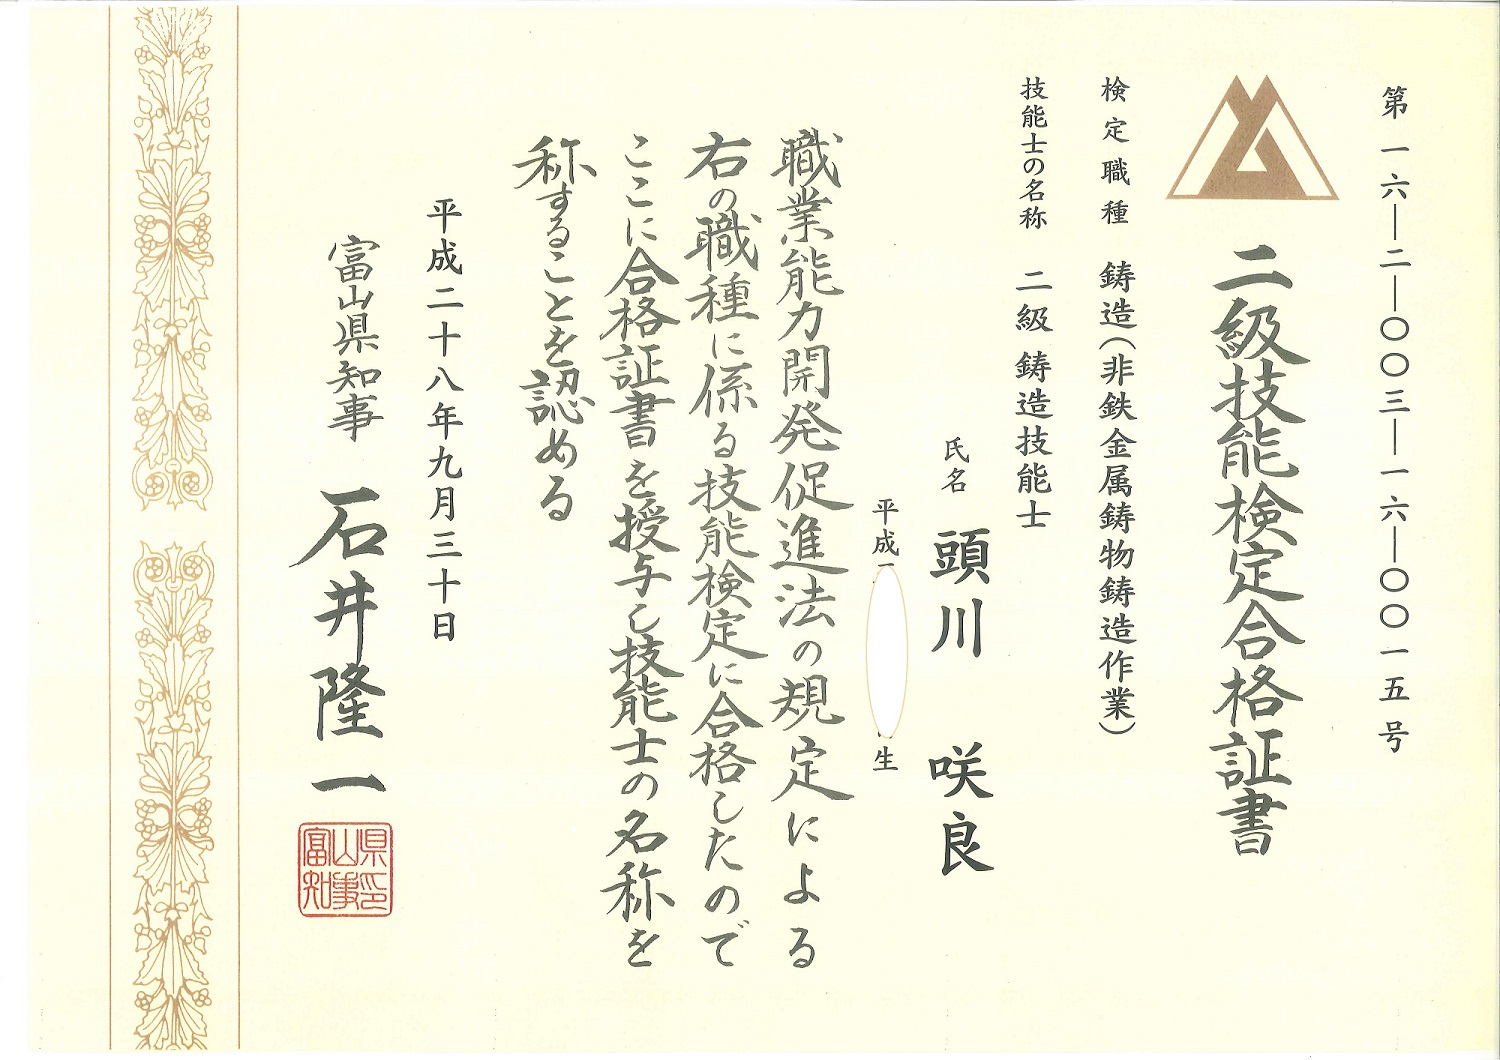 第一六―二―〇〇三―一六―〇〇一五号
二級技能検定合格証書
検定職種 鋳造(非鉄金属鋳物鋳造作業)
技能士の名称 二級 鋳造技能士
氏名 頭川 咲良
平成 生
職業能力開発促進法の規定による
右の職種に係る技能検定に合格したので
ここに合格証書を授与し技能士の名称を
称することを認める
平成二十八年九月三十日
富山県知事 石井隆一
富山県知事印